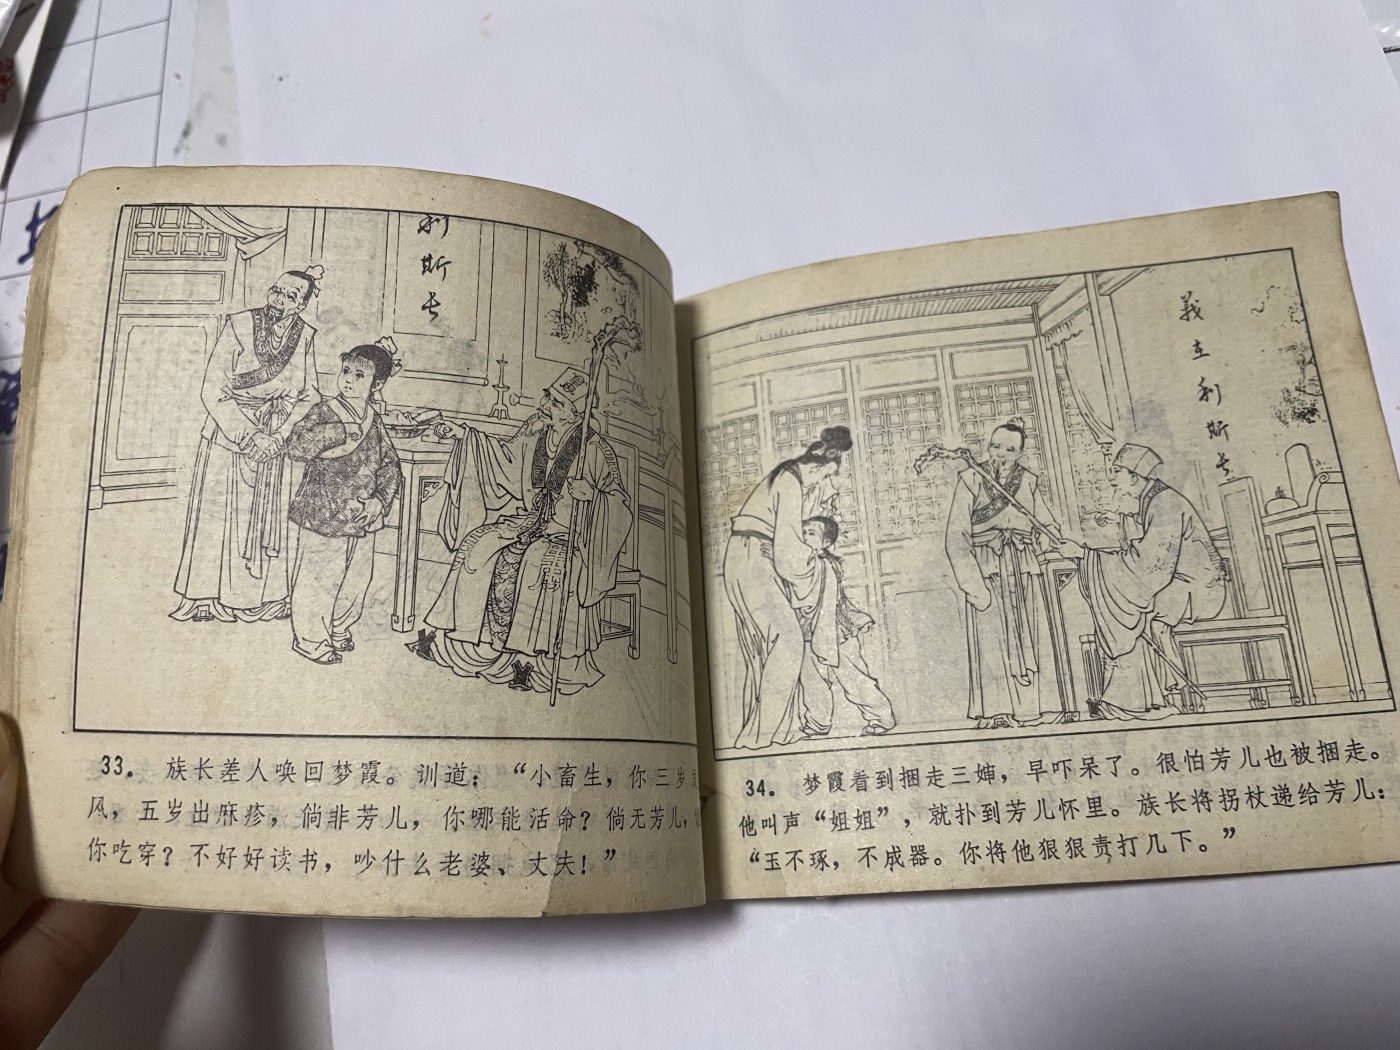 利
斯
长
33. 族长差人唤回梦霞。训道：“小畜生，你三岁
风，五岁出麻疹，倘非芳儿，你哪能活命？倘无芳儿，
你吃穿？不好好读书，吵什么老婆、丈夫！”
義
立
利
斯
长
34. 梦霞看到捆走三婶，早吓呆了。很怕芳儿也被捆走。
他叫声“姐姐”，就扑到芳儿怀里。族长将拐杖递给芳儿：
“玉不琢，不成器。你将他狠狠责打几下。”